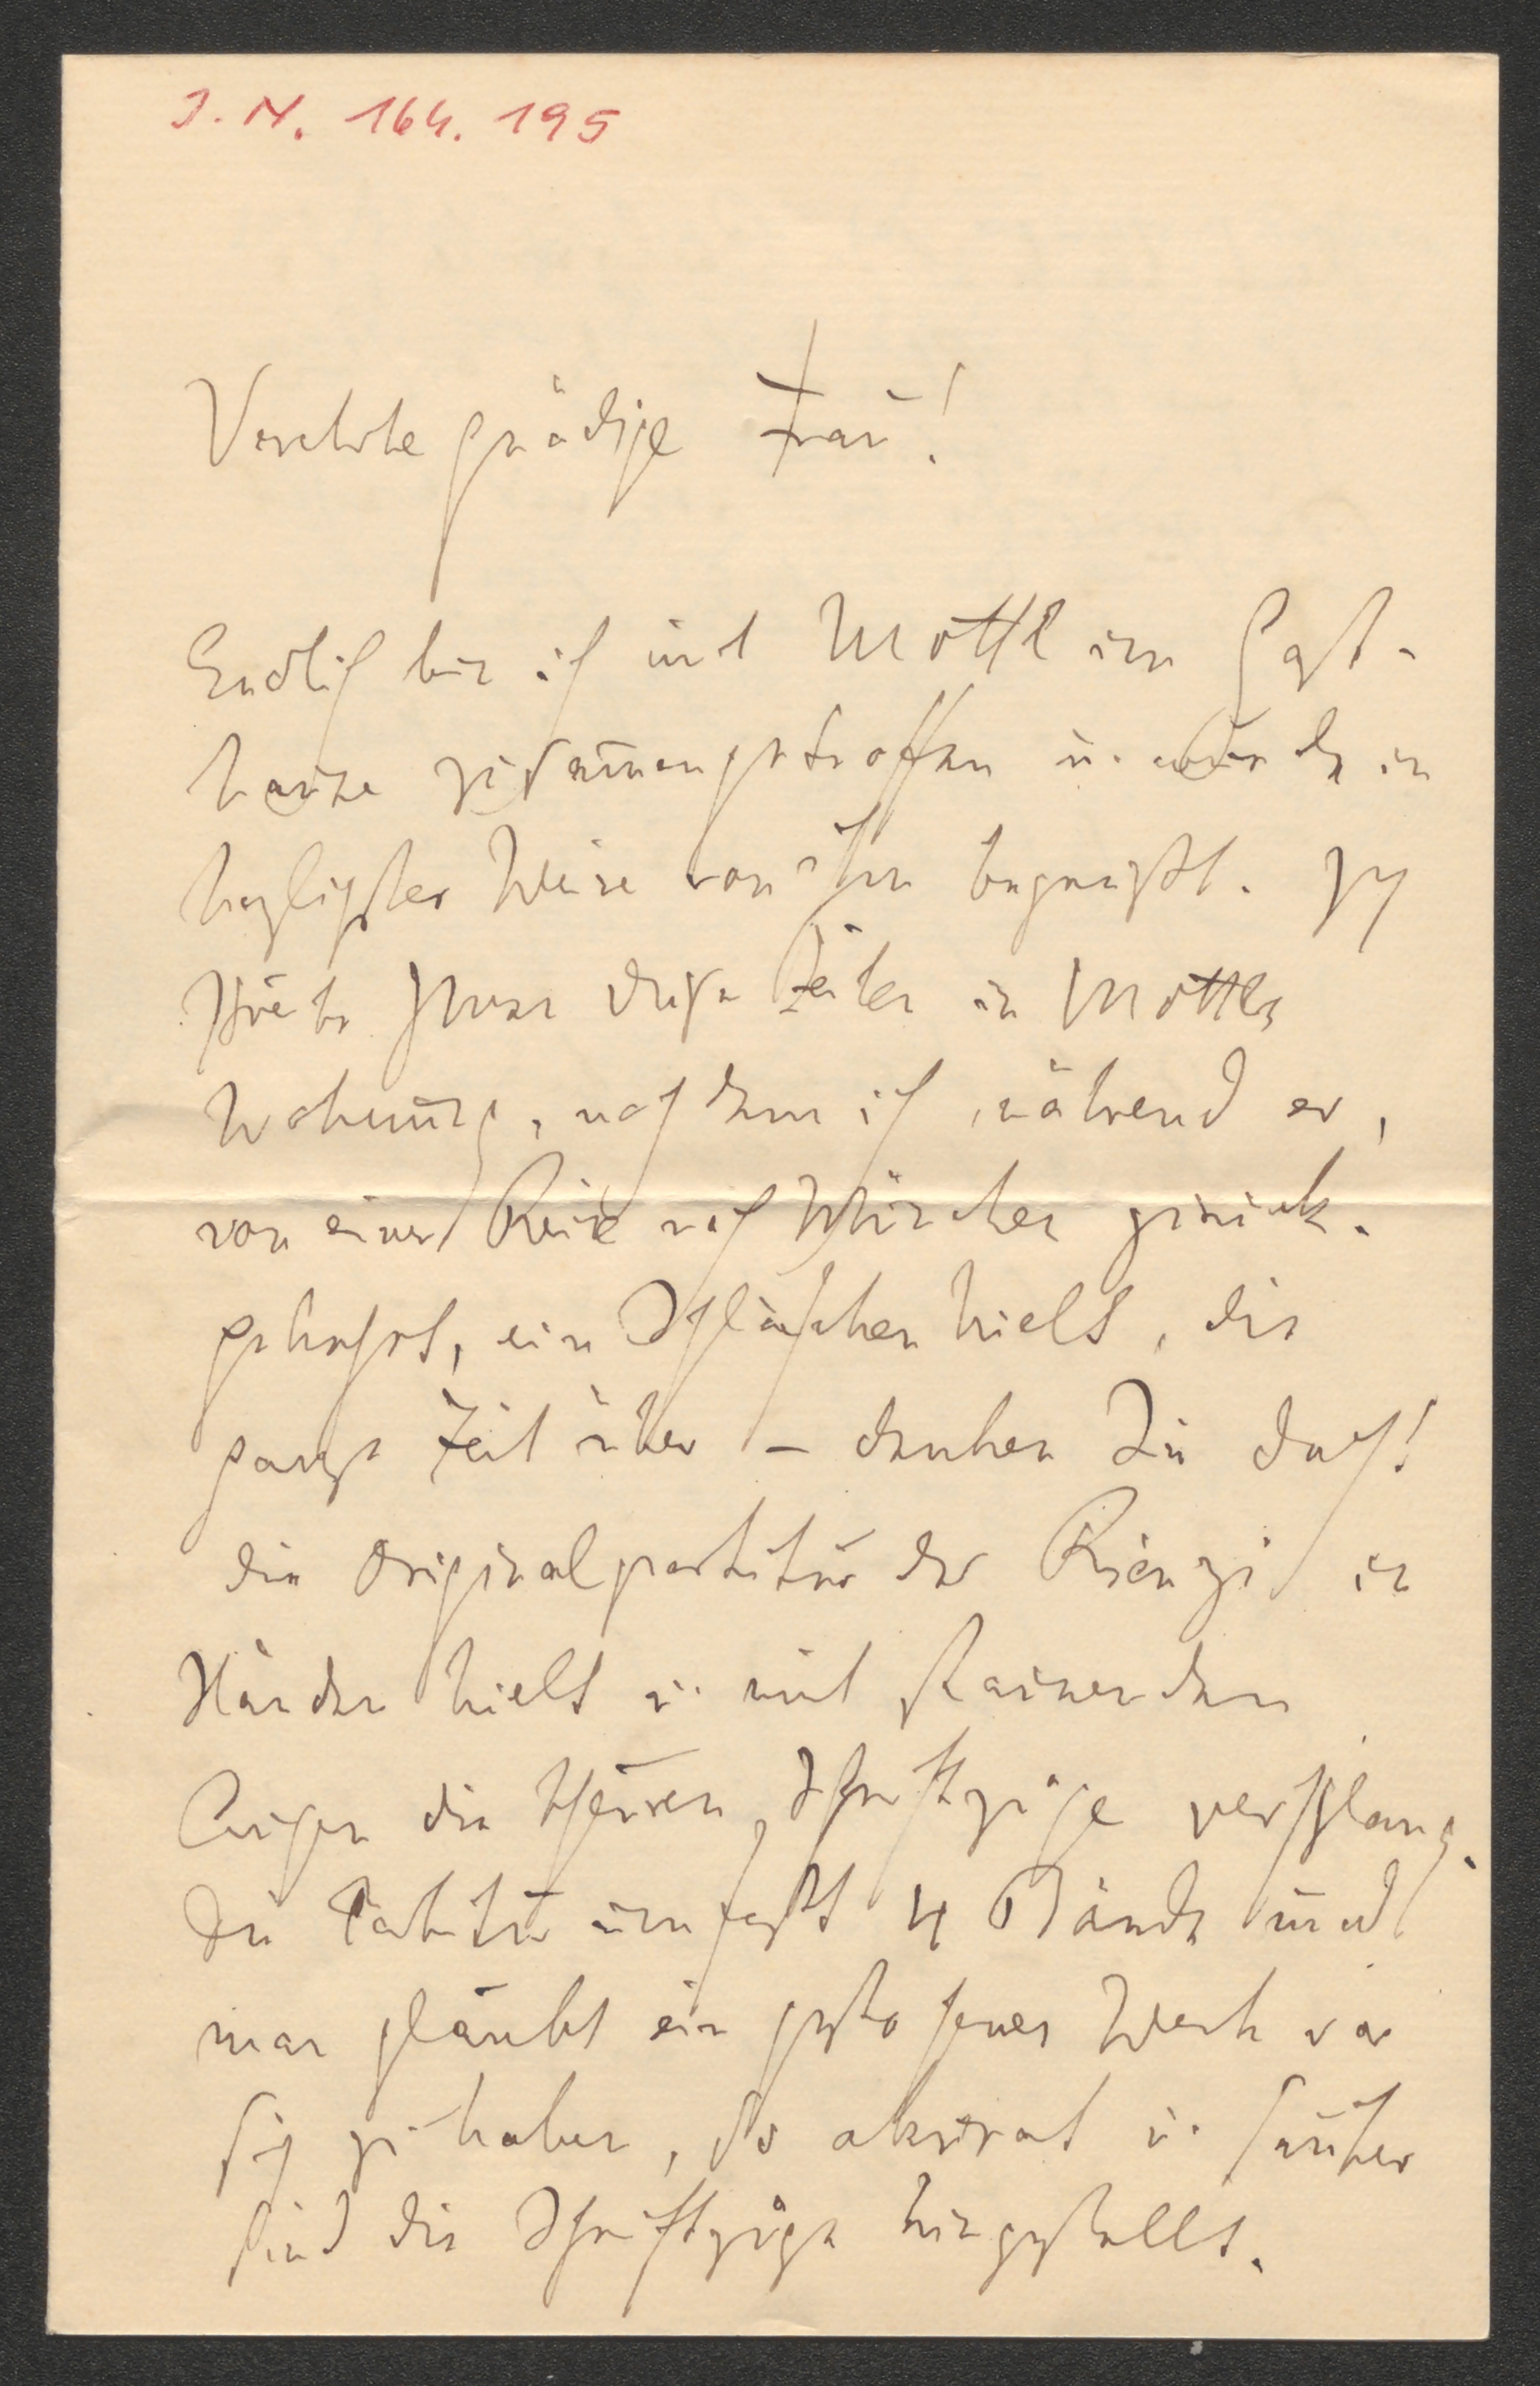 J. N. 164. 195
Verehrte gnädige Frau!
Endlich bin ich mit Mottl im Gast-
hause zusam̅engetroffen u. wurde in
herzlichster Weise von ihm begrüßt. Ich
schreibe Ihnen diese Zeilen in Mottls
Wohnung, nachdem ich während er,
von einer Reise nach München zurück-
gekehrt, ein Schläfchen hielt, die
ganze Zeit über – denken Sie doch!
die Originalpartitur des Rienzi in
Händen hielt u. mit staunenden
Augen die theuren Schriftzüge verschlang.
Die Partitur umfaßt 4 Bände und
man glaubt ein gestochenes Werk vor
sich zu haben, so akurat u. sauber
sind die Schriftzüge hingestellt.